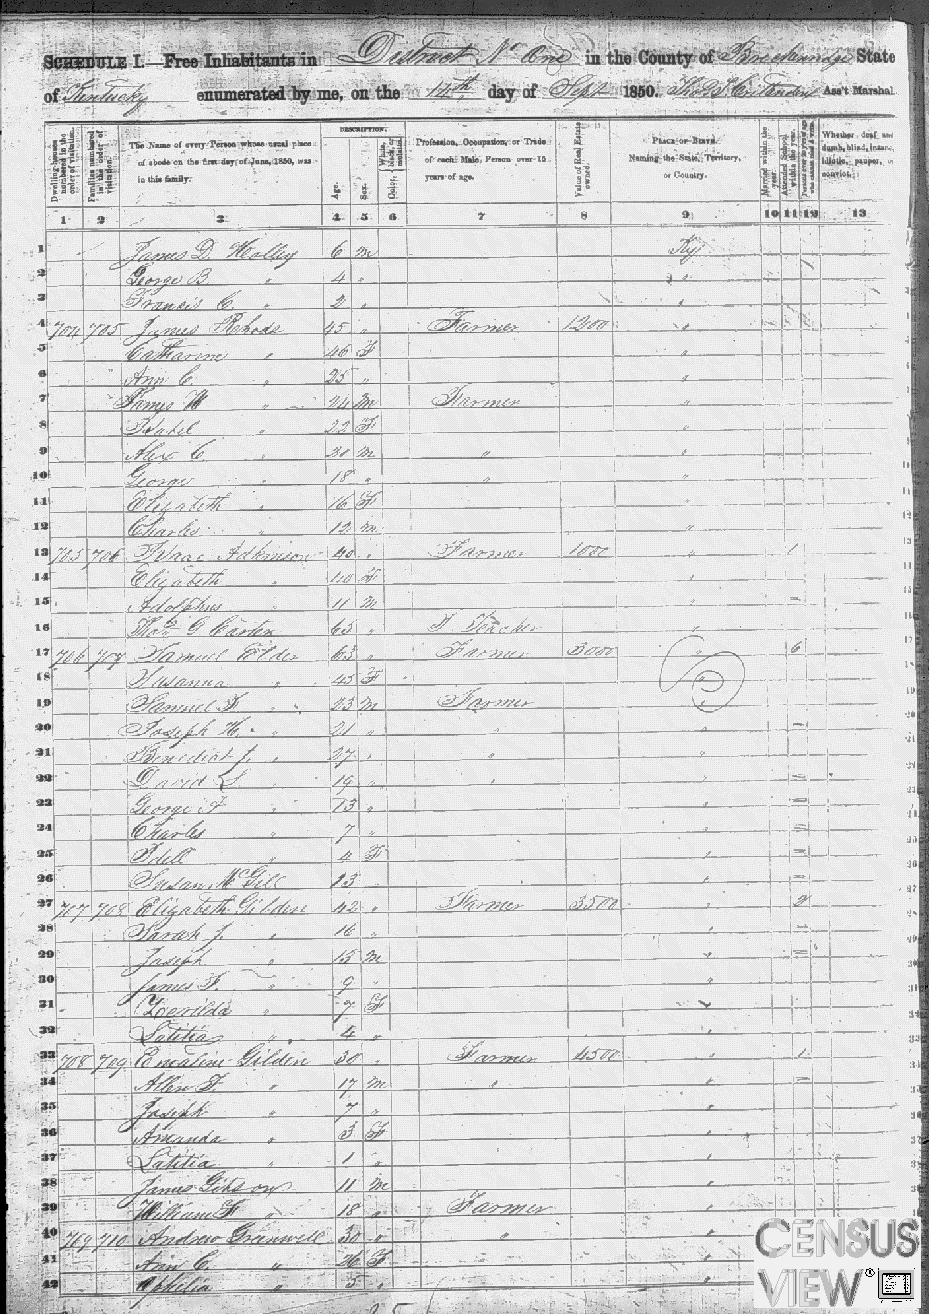 SCHEDULE I.—Free Inhabitants in District No One in the County of Breckenridge State
of Kentucky enumerated by me, on the 14th day of Sept 1850. Ass't Marshal
Dwelling-houses numbered in the order of visitation. Families numbered in the order of visitation. The Name of every Person whose usual place of abode on the first day of June, 1850, was in this family. DESCRIPTION. Age. Sex. Color, White, black, or mulatto. Profession, Occupation, or Trade of each Male Person over 15 years of age. Value of Real Estate owned. PLACE OF BIRTH. Naming the State, Territory, or Country. Married within the year. Attended School within the year. Whether deaf and dumb, blind, insane, idiotic, pauper, or convict.
1 2 3 4 5 6 7 8 9 10 11 12 13
1 James D. Holley 6 m Ky
2 George B " 4 " "
3 Francis C " 2 " "
4 704 705 James Rhods 45 " Farmer 1200 "
5 Catharine " 46 F "
6 Ann C. " 25 " "
7 James W " 24 m Farmer "
8 " 22 F "
9 Alex C. " 20 m " "
10 George " 18 " " "
11 Elizabeth " 16 F "
12 Charles " 12 m "
13 705 706 Isaac Adkinson 40 " Farmer 1000 " 1
14 Elizabeth " 40 F "
15 Adolphus " 11 m "
16 Thos G Carter 65 " Teacher "
17 706 707 Samuel Elder 63 " Farmer 3000 " 6
18 Susanna " 45 F "
19 Samuel " 23 m Farmer "
20 Joseph H. " 21 " " "
21 Benedict J. " 27 " " "
22 David L. " 19 " " "
23 George A " 13 " "
24 Charles " 7 " "
25 Idell " 4 F "
26 Susan McGill 13 "
27 707 708 Elizabeth Gilden 42 " Farmer 3500 " 2
28 Sarah J. " 16 " "
29 Joseph " 15 m "
30 James F. " 9 " "
31 Zerilda " 7 F "
32 Latitia " 4 " "
33 708 709 Emaline Gilden 30 " Farmer 4500 " 1
34 Allen F. " 17 m " "
35 Joseph " 7 " "
36 Amanda " 3 F "
37 Latitia " 1 " "
38 James Gibson 11 m "
39 William F " 18 " Farmer "
40 709 710 Andrew Greenwell 30 " " "
41 Ann C. " 26 F
42 Ophilia " 5 "
CENSUS
VIEW®